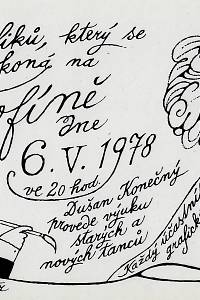 liků, který se
koná na
ofíně
dne
6. V. 1978
ve 20 hod.
Dušan Konečný
provede výuku
starých a
nových tanců
Každý účastní
grafick